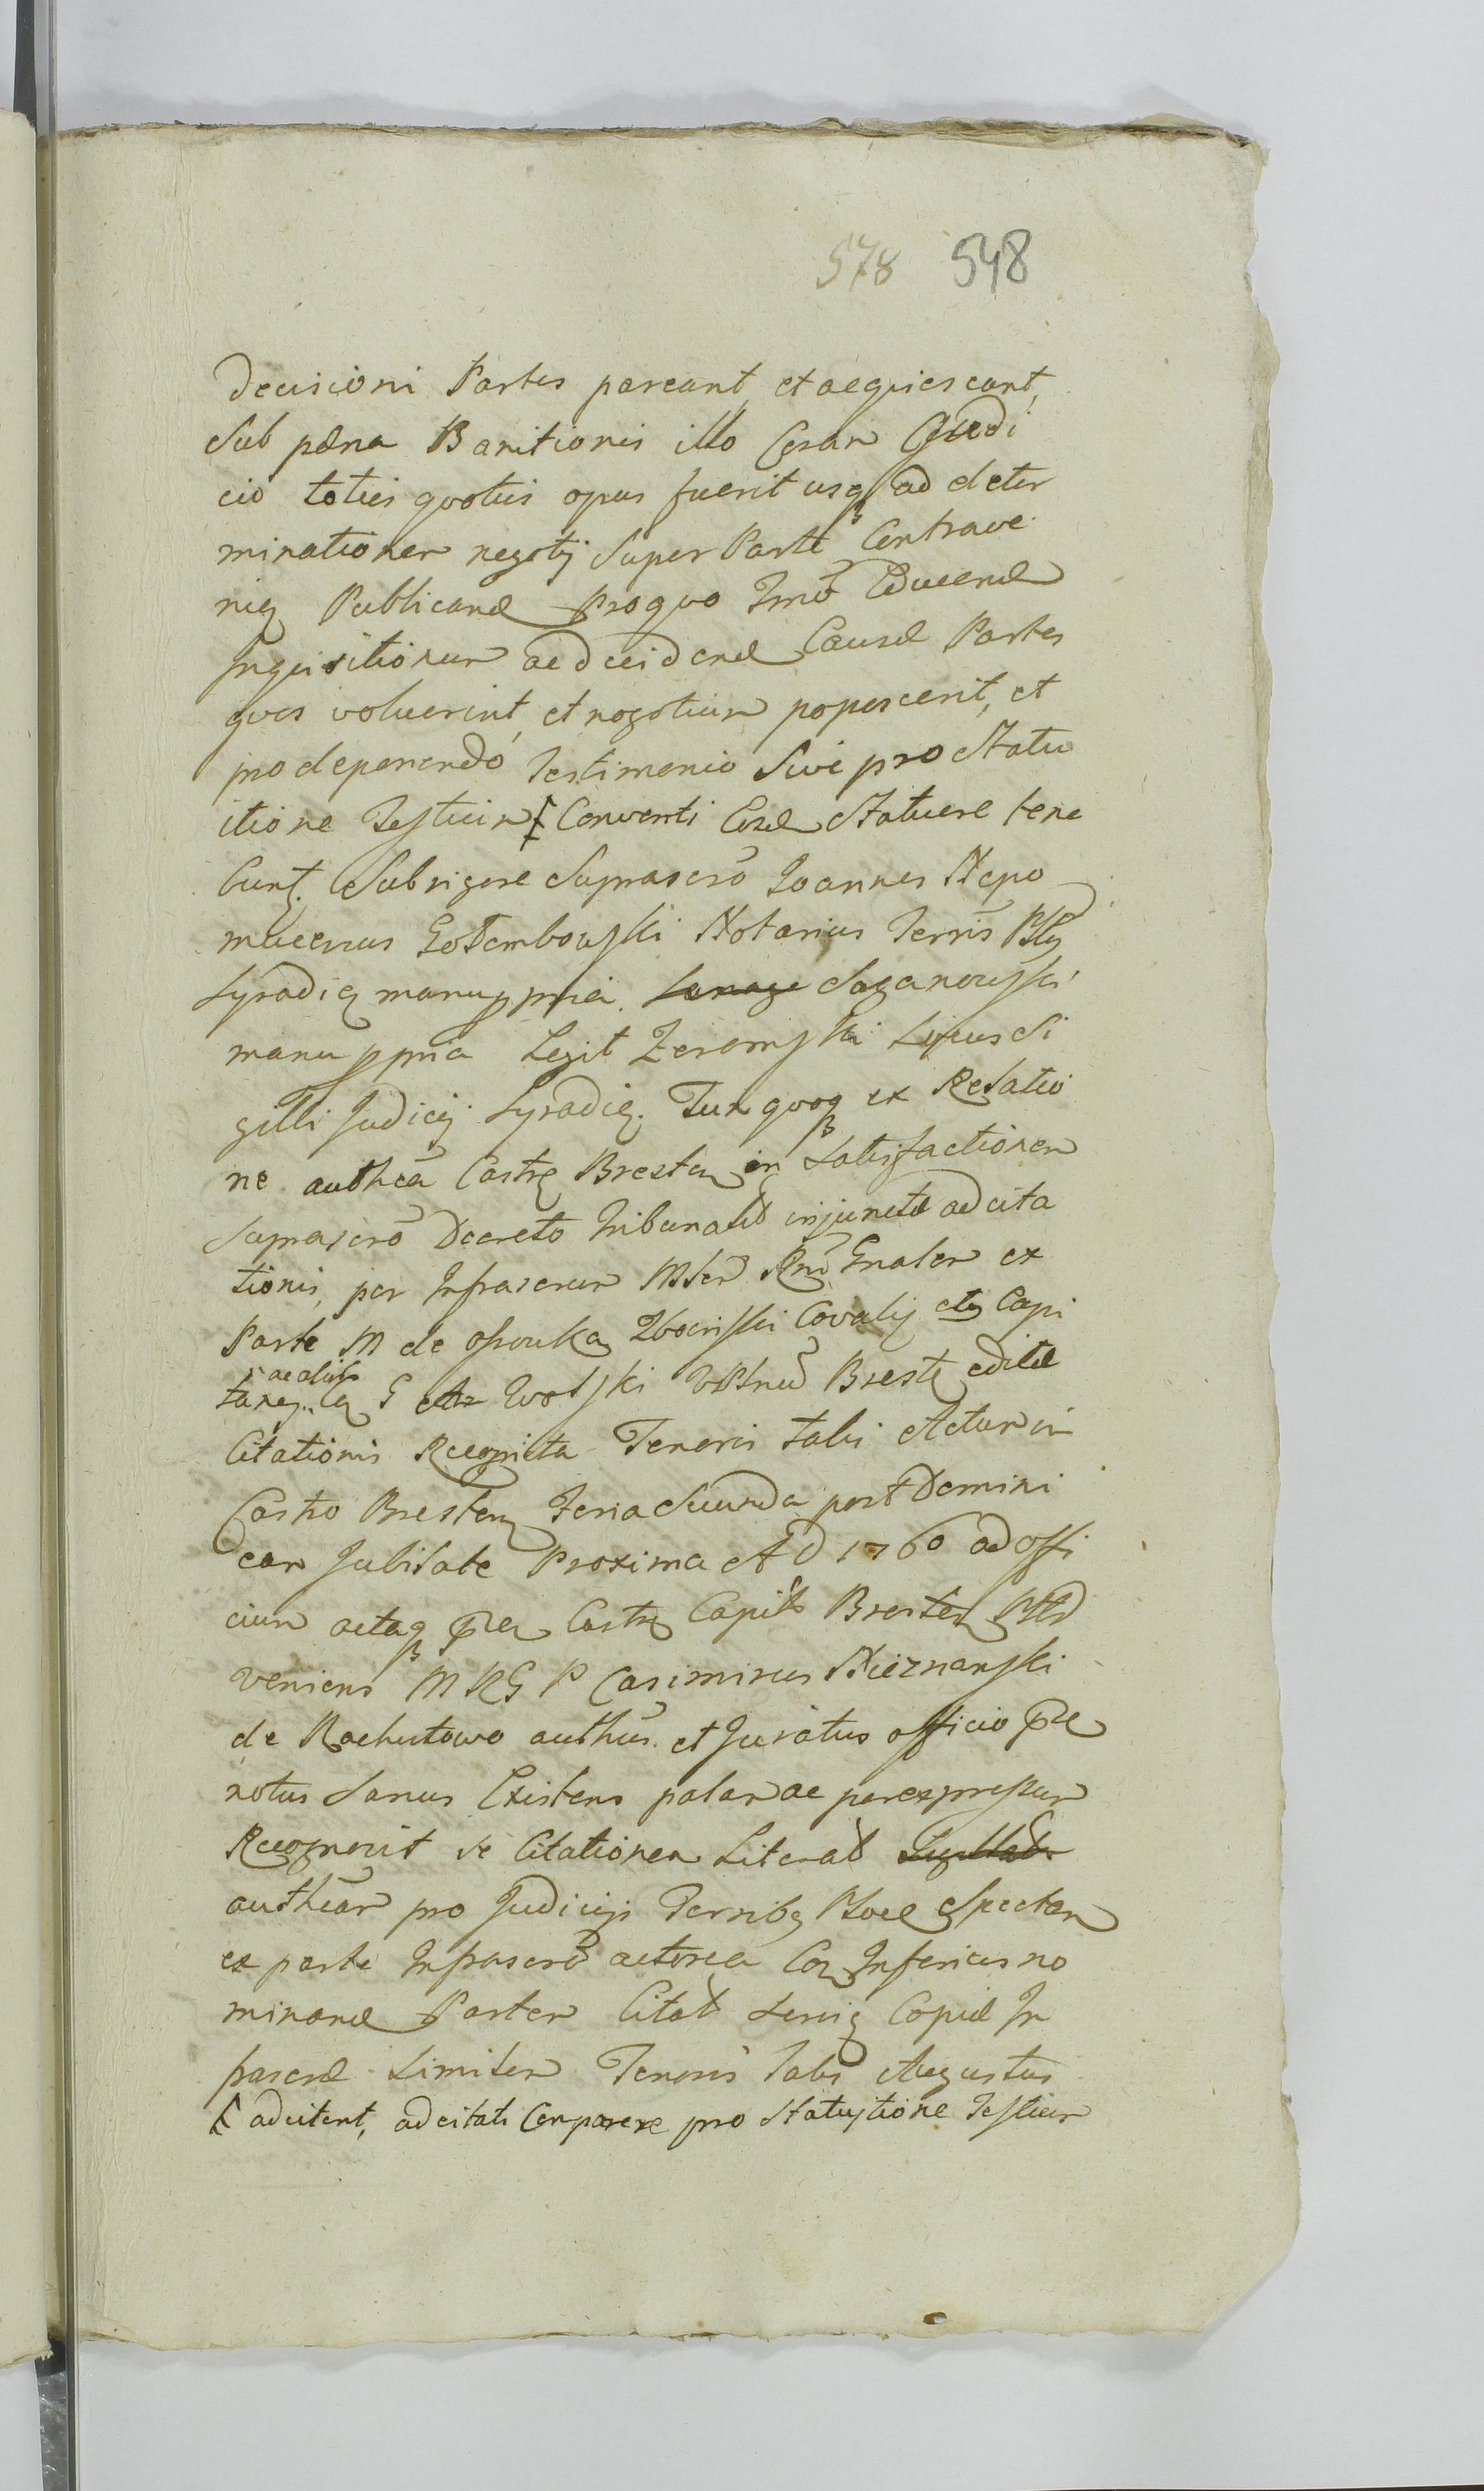 578 548
Decisioni Partes pareant, et acquiescant,
Sub pœna Banitionis illo Coram
cio toties quoties opus fuerit usq ad deter
minationem negotij Super Parte Contrave
nien Publicand Pro quo Trno Educend
Inquisitionum ac decidend Causæ Partes
ques voluerint, et negotium poposcerit, et
pro deponendo Testimonio Sive pro Statu
itione Testium Conventi Statuere tene
bunt. Sub rigore Suprascro Joannes Nepo
mucenus Gołembowski Notarius Terris
Syradien manu ppria. Saganowski
manu ppria Legit Zeromski Locus Si
gilli Judicij Syradien. Tum quoq ex Relatio
ne authca Castren Bresten in Satisfactionem
Suprascro Decreto Tribunalit injunctæ adcita
tionis, per Infrascrum Mtem Rni Gnalem ex
Parte M de Osowka Zboinski Covalij Capi
tanei G Wolski Breste editæ
Citationis Recognita Tenoris talis Actum in
Castro Bresten Feria Secunda post Domini
cam Jubilate Proxima A D 1760 ad offi
cium actaq Castren Capit Bresten
Veniens M R G P Casimirus Nieznanski
de Rachutowo authus et Juratus officio
notus Sanus Existens palam ac per expressum
Recognovit se Citationem Literat
autheam pro Judicijs Terribq Spectan
ex parte Infrascro actorea Con Inferius no
minand Partem Citat Servien Copiæ In
frascræ Similem Tenoris talis Augustus
adcitent, adcitati Comparere pro Statuitione Testium